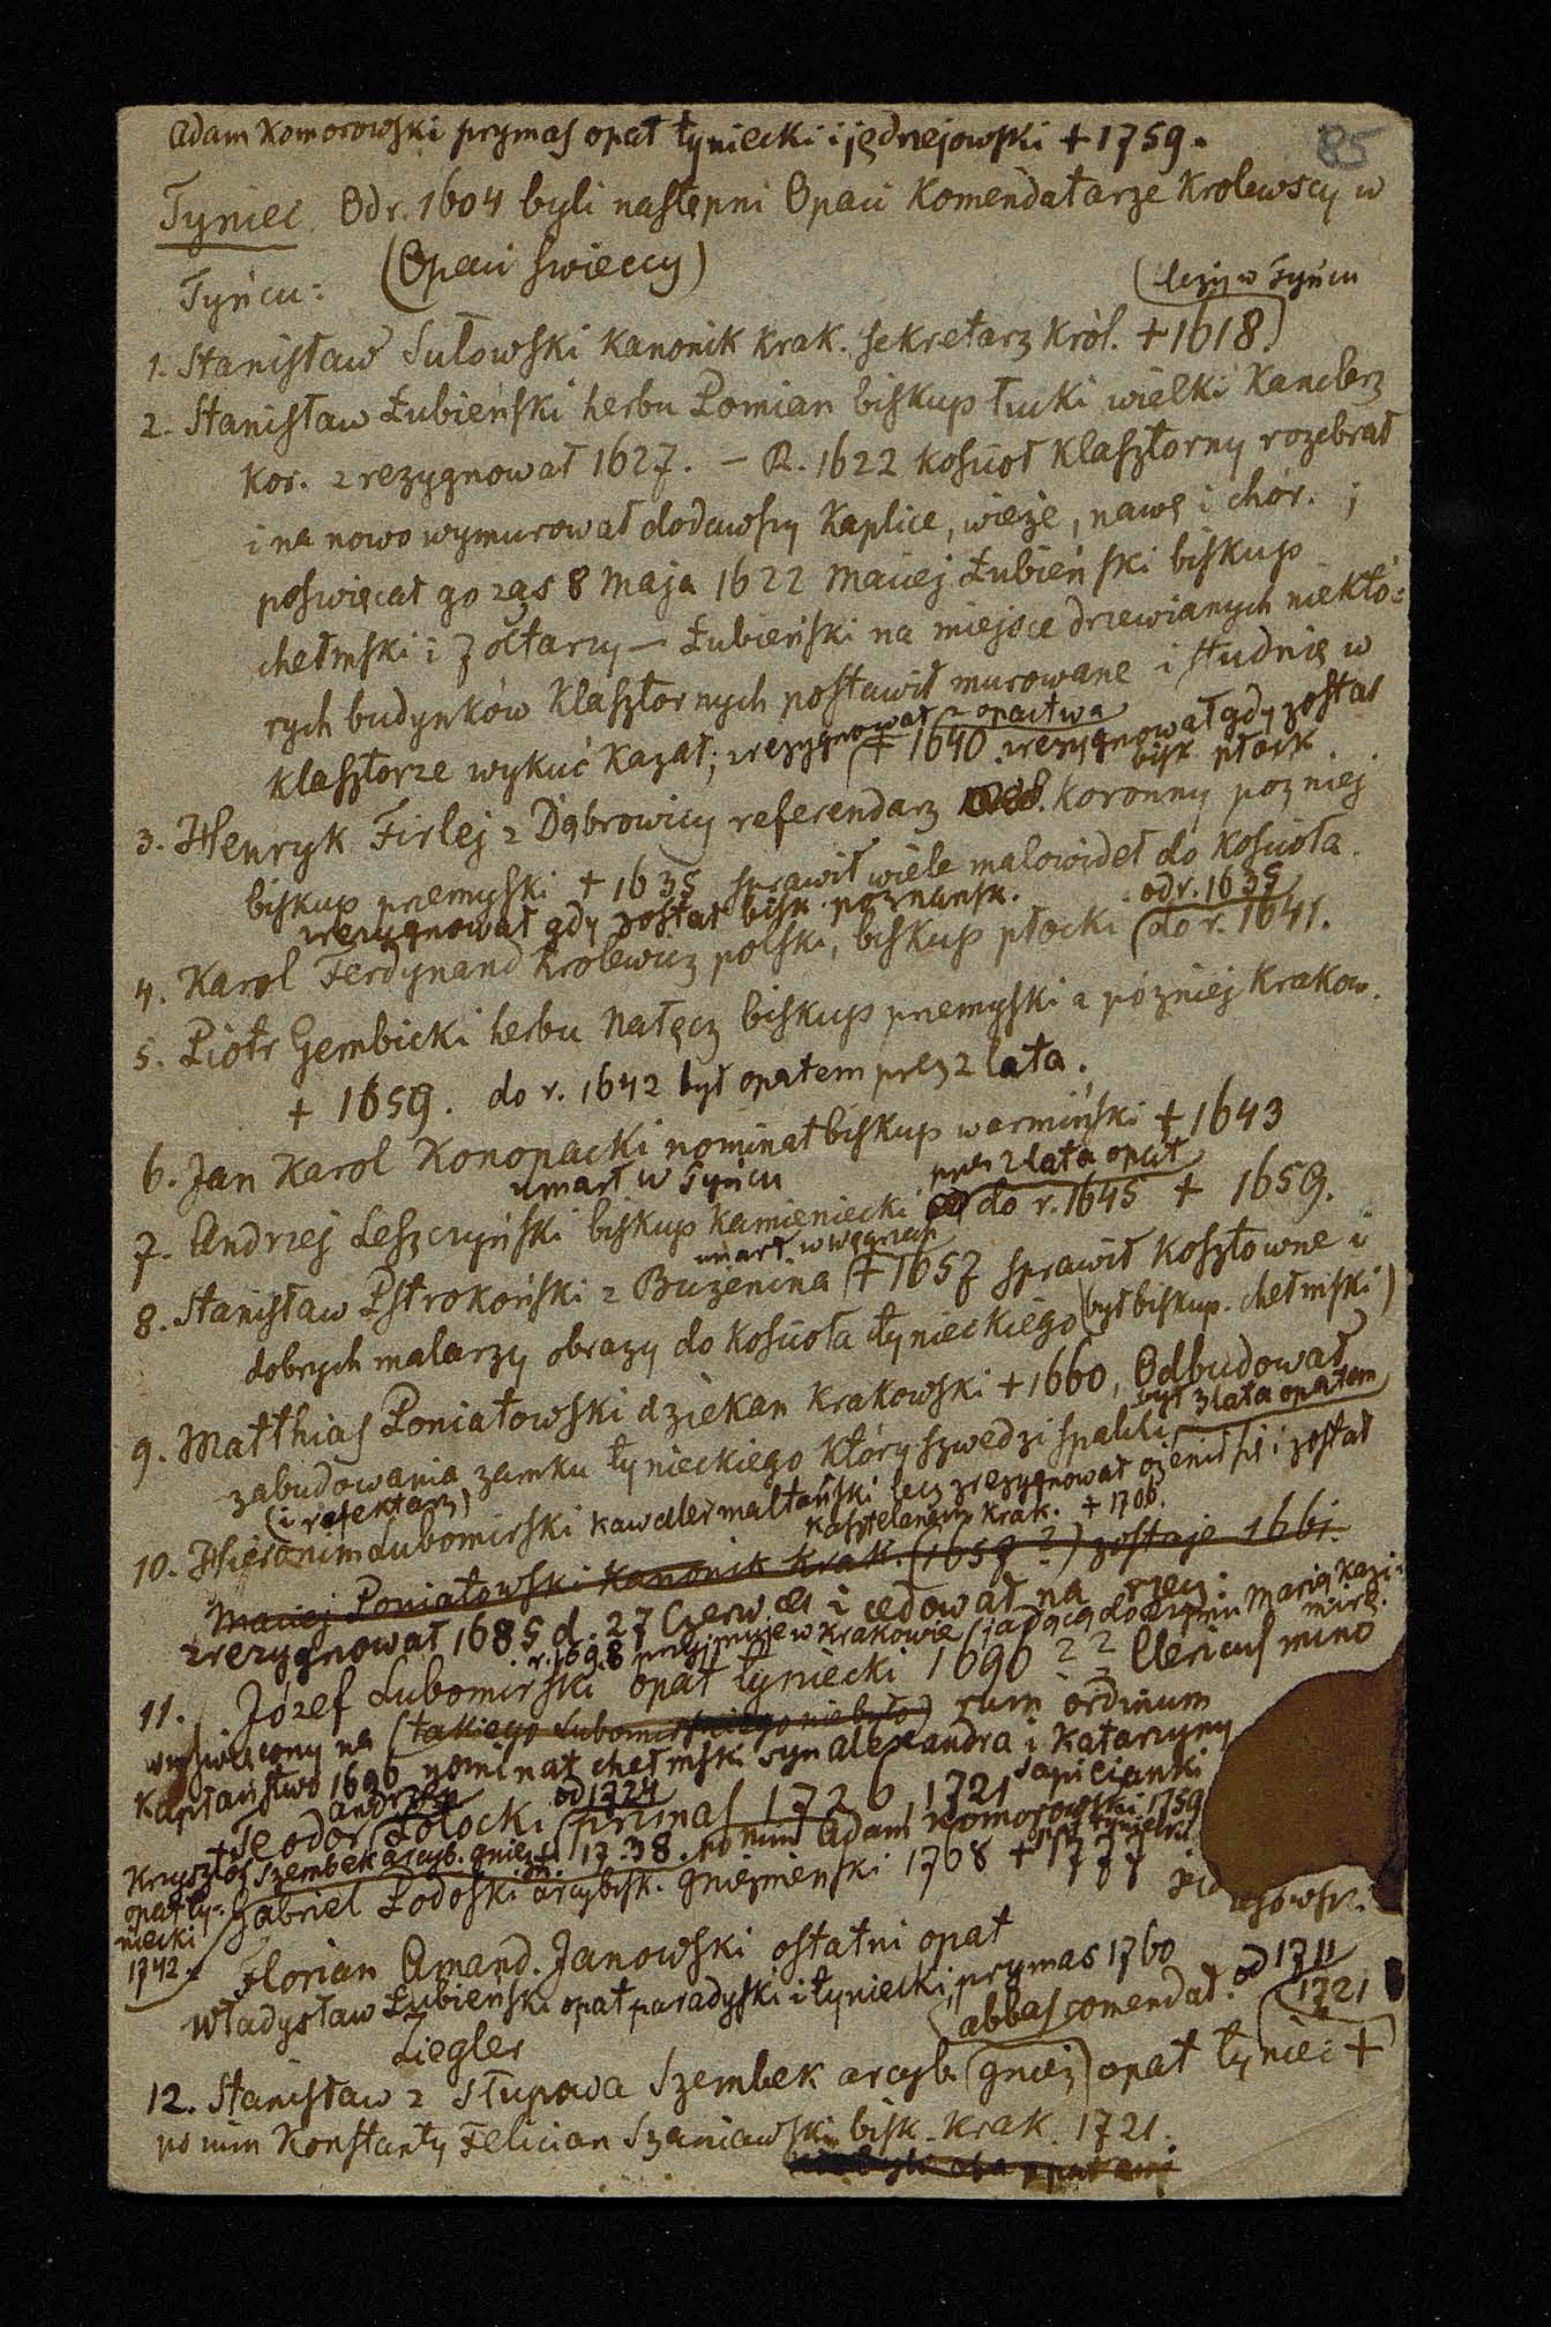 Adam Komorowski prymas opat tyniecki i jędrzejowski + 1759.
85
Tyniec Od r. 1604 byli następni Opaci Komendatarze Krolewscy w
Tyńcu: (Opaci swieccy)
(leży w Tyńcu
1. Stanisław Sułowski kanonik krak. sekretarz król. + 1618)
2. Stanisław Łubieński herbu Pomian biskup łucki wielki kanclerz
kor. zrezygnował 1627. – R. 1622 kościoł klasztorny rozebrał
i na nowo wymurował dodawszy kaplice, wieże, nawę i chór. ;
poswięcał go zaś 8 maja 1622 Maciej Łubieński biskup
chełmski i 7 ołtarzy – Łubieński na miejsce drzewianych niektó=
rych budynków klasztornych postawił murowane i studnię w
klasztorze wykuć kazał; zrezygnował z opactwa
+ 1640. zrezygnował gdy został
bisk. płock.
3. Henryk Firlej z Dąbrowicy referendarz koronny pozniej
biskup przemyski + 1635 sprawił wiele malowideł do kościoła.
zrezygnował gdy został bisk. poznansk.
od r. 1635
4. Karol Ferdynand krolewicz polski, biskup płocki (do r. 1641.
5. Piotr Gembicki herbu Nałęcz biskup przemyski a pózniej krakow.
+ 1659. do r. 1642 był opatem przez 2 lata.
6. Jan Karol Konopacki nominat biskup warmiński + 1643
umarł w Tyńcu
przez 2 lata opat
7. Andrzej Leszczyński biskup kamieniecki do r. 1645 + 1659.
umarł w węgrzech
8. Stanisław Pstrokoński z Burzenina (+ 1657 sprawił kosztowne i
dobrych malarzy obrazy do kościoła tynieckiego (był biskup. chełmski)
9. Matthias Poniatowski dziekan krakowski + 1660, Odbudował
był 3 lata opatem
zabudowania zamku tynieckiego który szwedzi spalili
(i refektarz)
10. Hieronim Lubomirski kawaler maltański lecz zrezygnował ożenił się i został
kasztelanem krak. + 1706.
Maciej Poniatowski kanonik krak. (1659?) zostaje 1661.
zrezygnował 1685 d. 27 Czerw. i cedował na rzecz:
r. 1698 przyjmuje w krakowie (jadącą do Marię Kazi=
mirę.
11. Józef Lubomirski opat tyniecki 1690 ?? Clericus mino
wyswięcony na (takiego Lubomirskiego nie było) rum ordinum
Kapłaństwo 1696 nominat chełmski syn Alexandra i Katarzyny
Sapieżanki
Andrzej
od 1724
+ Teodor Potocki (prymas 1726, 1721
Krzysztof Szembek arcyb. gniezn. 1738. po nim Adam Komorowski 1759
opat tyniecki
opat ty=
niecki
1742.
Gabriel Podoski arcybisk. gnieznienski 1768 + 1777
Florian Amand. Janowski ostatni opat
Władysław Łubieński opat paradyski i tyniecki, prymas 1760
Ziegler
(abbas comendat. od 1711
1721
12. Stanisław z Słupowa Szembek arcyb. (gniez) opat tyniec +
po nim Konstanty Felician Szaniawski bisk. krak. 1721.